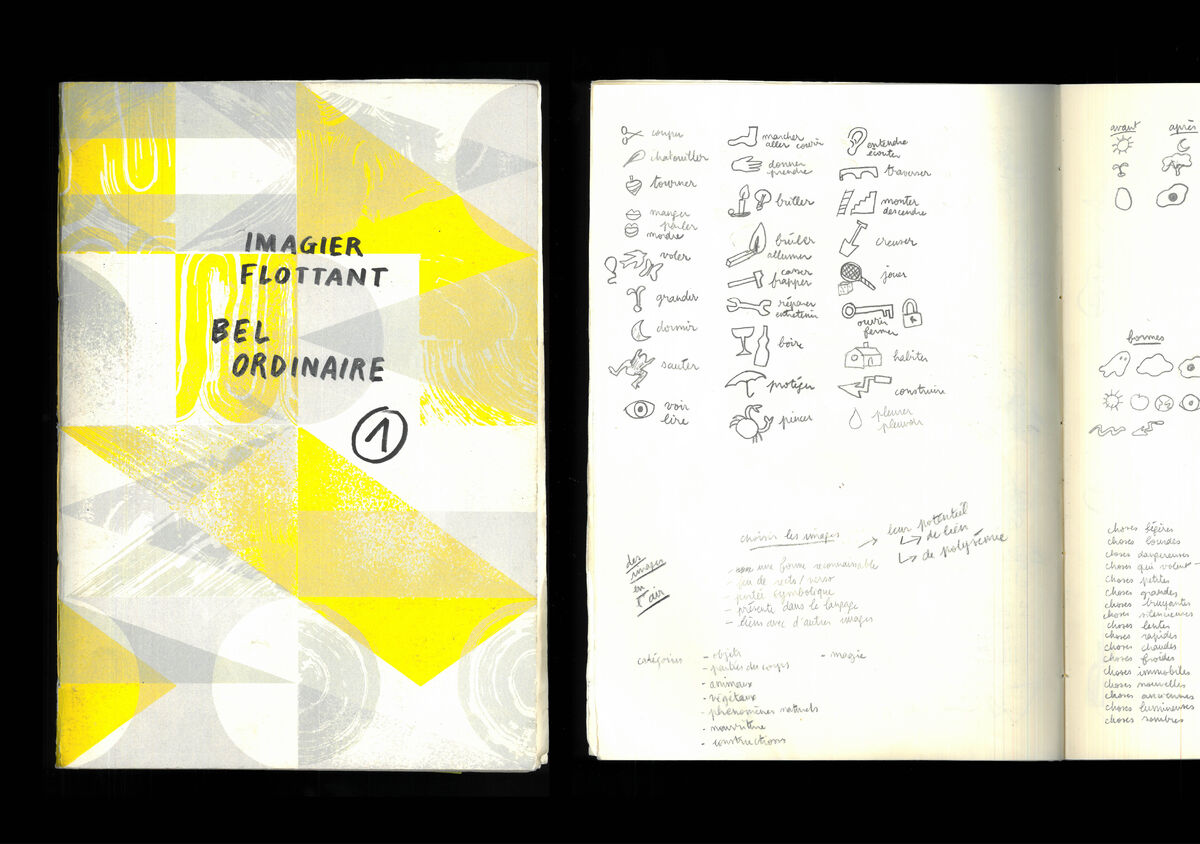 IMAGIER
FLOTTANT
BEL
ORDINAIRE
1
couper
chatouiller
tourner
manger
parler
mordre
voler
grandir
dormir
sauter
voir
lire
marcher
aller courir
donner
prendre
briller
brûler
allumer
casser
frapper
réparer
entretenir
boire
protéger
pincer
entendre
écouter
traverser
monter
descendre
creuser
jouer
ouvrir
fermer
habiter
construire
pleurer
pleuvoir
des
images
en
l'air
choisir les images
leur potentiel
de lien
de polysémie
- une forme reconnaissable
- jeu de recto/verso
- portée symbolique
- présente dans le langage
- liens avec d'autres images
catégories
- objets
- parties du corps
- animaux
- végétaux
- phénomènes naturels
- nourriture
- constructions
- magie
avant
après
formes
choses légères
choses lourdes
choses dangereuses
choses qui volent -
choses petites
choses grandes
choses bruyantes
choses silencieuses
choses lentes
choses rapides
choses chaudes
choses froides
choses immobiles
choses nouvelles
choses anciennes
choses lumineuses
choses sombres